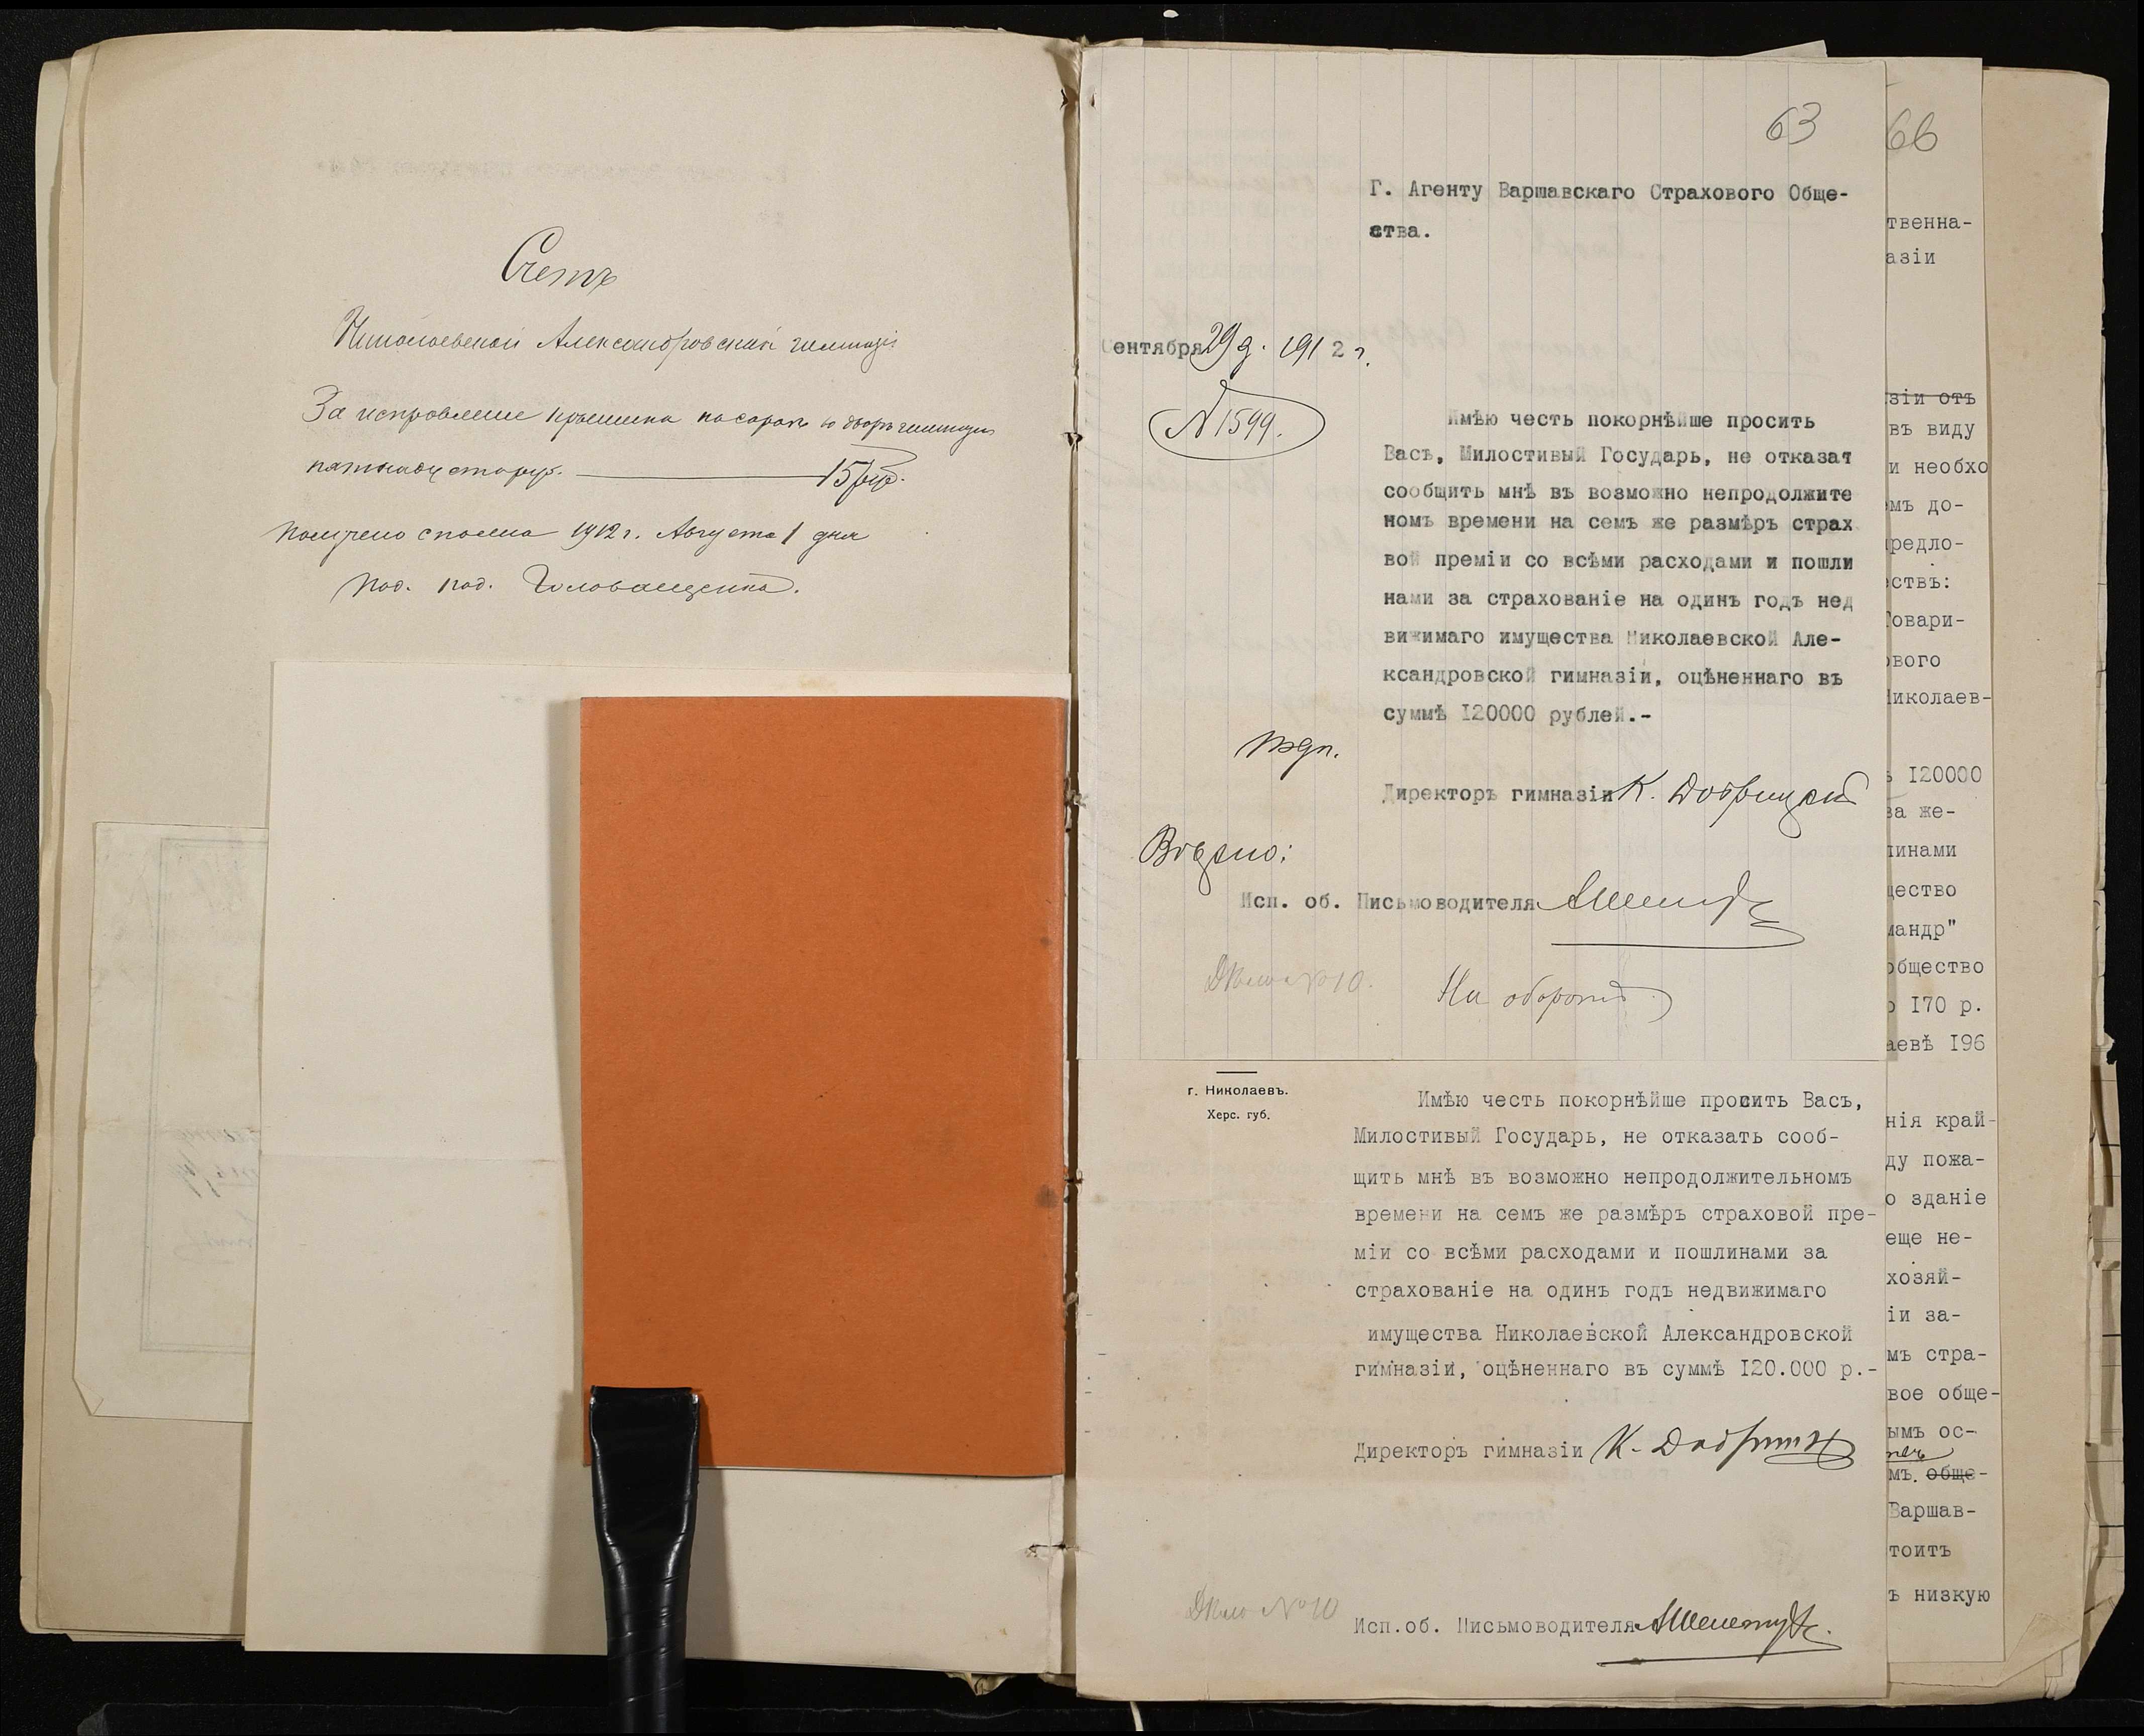 Счетъ
Николаевской Александровской гимназіи
За исправленіе крышика на сараѣ во дворѣ гимназіи
пятнадцать руб. 15 руб.
Получено сполна 1912 г. Августа 1 дня
Под. Головащенко.
63
Г. Агенту Варшавскаго Страхового Обще-
ства.
Сентября 29 д. 1912 г.
№ 1599.
Имѣю честь покорнѣйше просить
Васъ, Милостивый Государь, не отказат
сообщить мнѣ въ возможно непродолжите
номъ времени на семъ же размѣръ страх
вой преміи со всѣми расходами и пошли
нами за страхованіе на одинъ годъ нед
вижимаго имущества Николаевской Але-
ксандровской гимназіи, оцѣненнаго въ
суммѣ I20000 рублей.-
Подп.
Директоръ гимназіи К. Добрицкій
Вѣрно:
Исп. об. Письмоводителя
Дѣло №10.
На оборотѣ
г. Николаевъ.
Херс. губ.
Имѣю честь покорнѣйше просить Васъ,
Милостивый Государь, не отказать сооб-
щить мнѣ въ возможно непродолжительномъ
времени на семъ же размѣръ страховой пре-
міи со всѣми расходами и пошлинами за
страхованіе на одинъ годъ недвижимаго
имущества Николаевской Александровской
гимназіи, оцѣненнаго въ суммѣ I20.000 р.-
Директоръ гимназіи К.
Дѣло №10
Исп.об. Письмоводителя
66
твенна-
азіи
зіи отъ
въ виду
и необхо
мъ до-
редло-
ствъ:
Товари-
ового
Николаев-
ъ I20000
за же-
линами
щество
мандр"
общество
о I70 р.
аевѣ I96
нія край-
ду пожа-
о зданіе
еще не-
хозяй-
іи за-
мъ стра-
вое обще-
ымъ ос-
мъ. обще-
Варшав-
тоитъ
ъ низкую